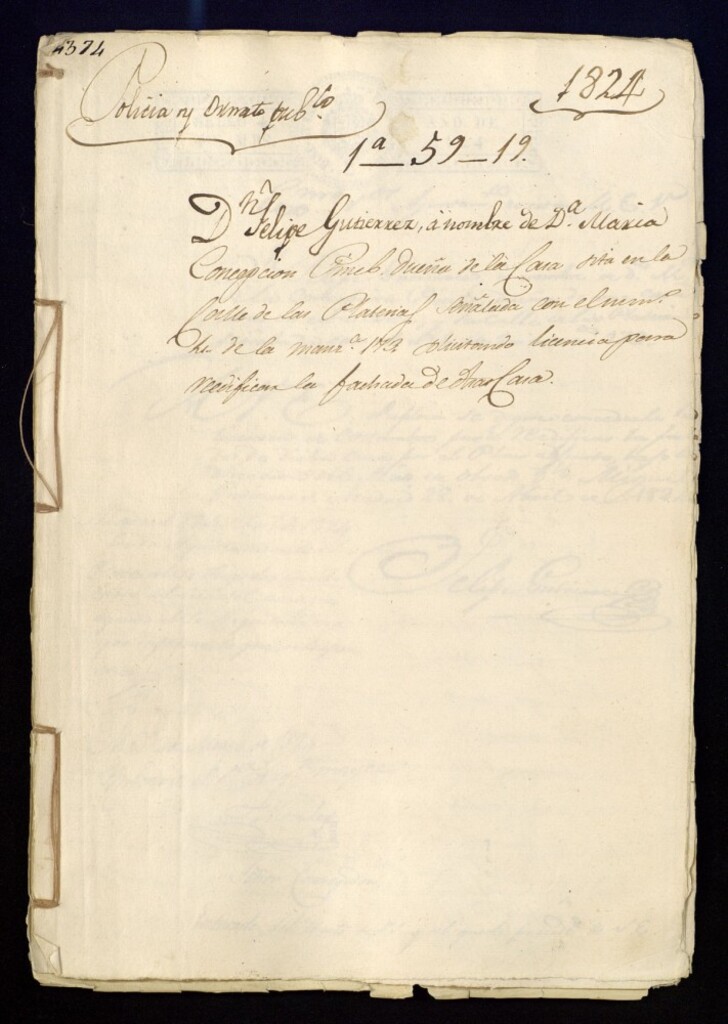 4374
Policia y Ornato pub.co
1824
1a 59 19.
Dn Felipe Gutierrez, á nombre de Da. Maria
Concepcion dueña de la Casa sita en la
Calle de las Platerias señalada con el num.o
de la manz.a 173 solicitando licencia para
reedificar la fachada de dha Casa.